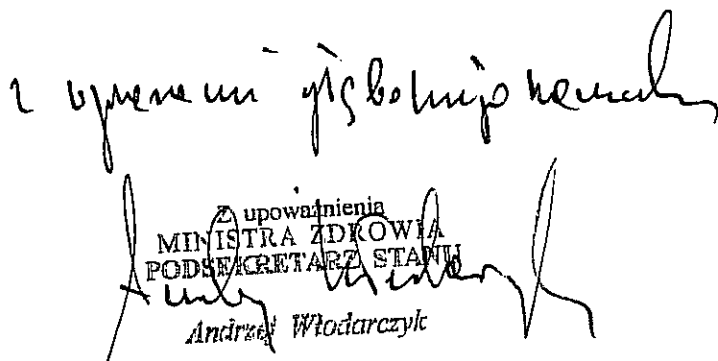 z wyrazami głębokiego szacunku
Z upoważnienia
MINISTRA ZDROWIA
PODSEKRETARZ STANU
Andrzej Włodarczyk